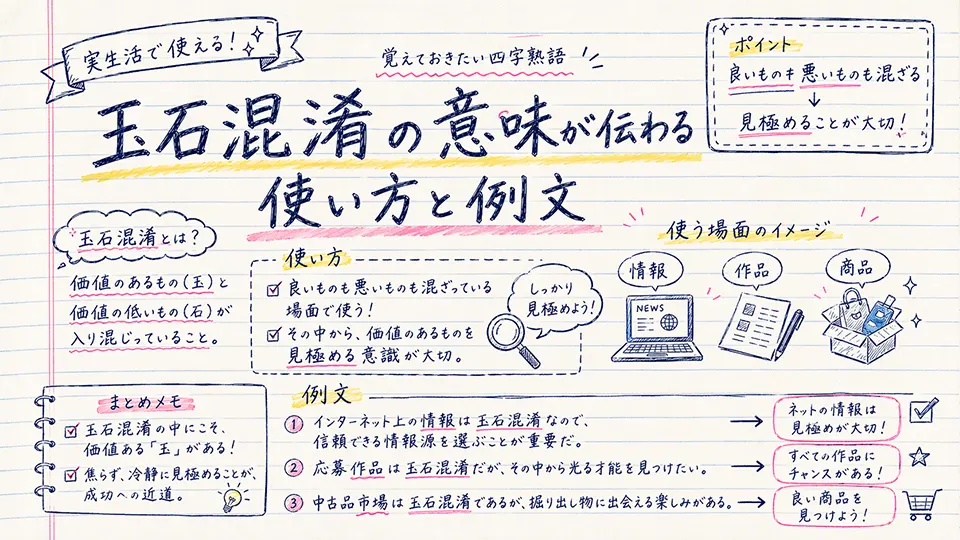 実生活で使える！
覚えておきたい四字熟語
玉石混淆の意味が伝わる
使い方と例文
ポイント
良いものも悪いものも混ざる
↓
見極めることが大切！
玉石混淆とは？
価値のあるもの(玉)と
価値の低いもの(石)が
入り混じっていること。
使い方
良いものも悪いものも混ざっている
場面で使う！
その中から、価値のあるものを
見極める意識が大切。
しっかり
見極めよう！
使う場面のイメージ
情報
作品
商品
NEWS
まとめメモ
玉石混淆の中にこそ、
価値ある「玉」がある！
焦らず、冷静に見極めることが、
成功への近道。
例文
① インターネット上の情報は玉石混淆なので、
信頼できる情報源を選ぶことが重要だ。
→ ネットの情報は
見極めが大切！
② 応募作品は玉石混淆だが、その中から光る才能を見つけたい。
→ すべての作品に
チャンスがある！
③ 中古品市場は玉石混淆であるが、掘り出し物に出会える楽しみがある。
→ 良い商品を
見つけよう！